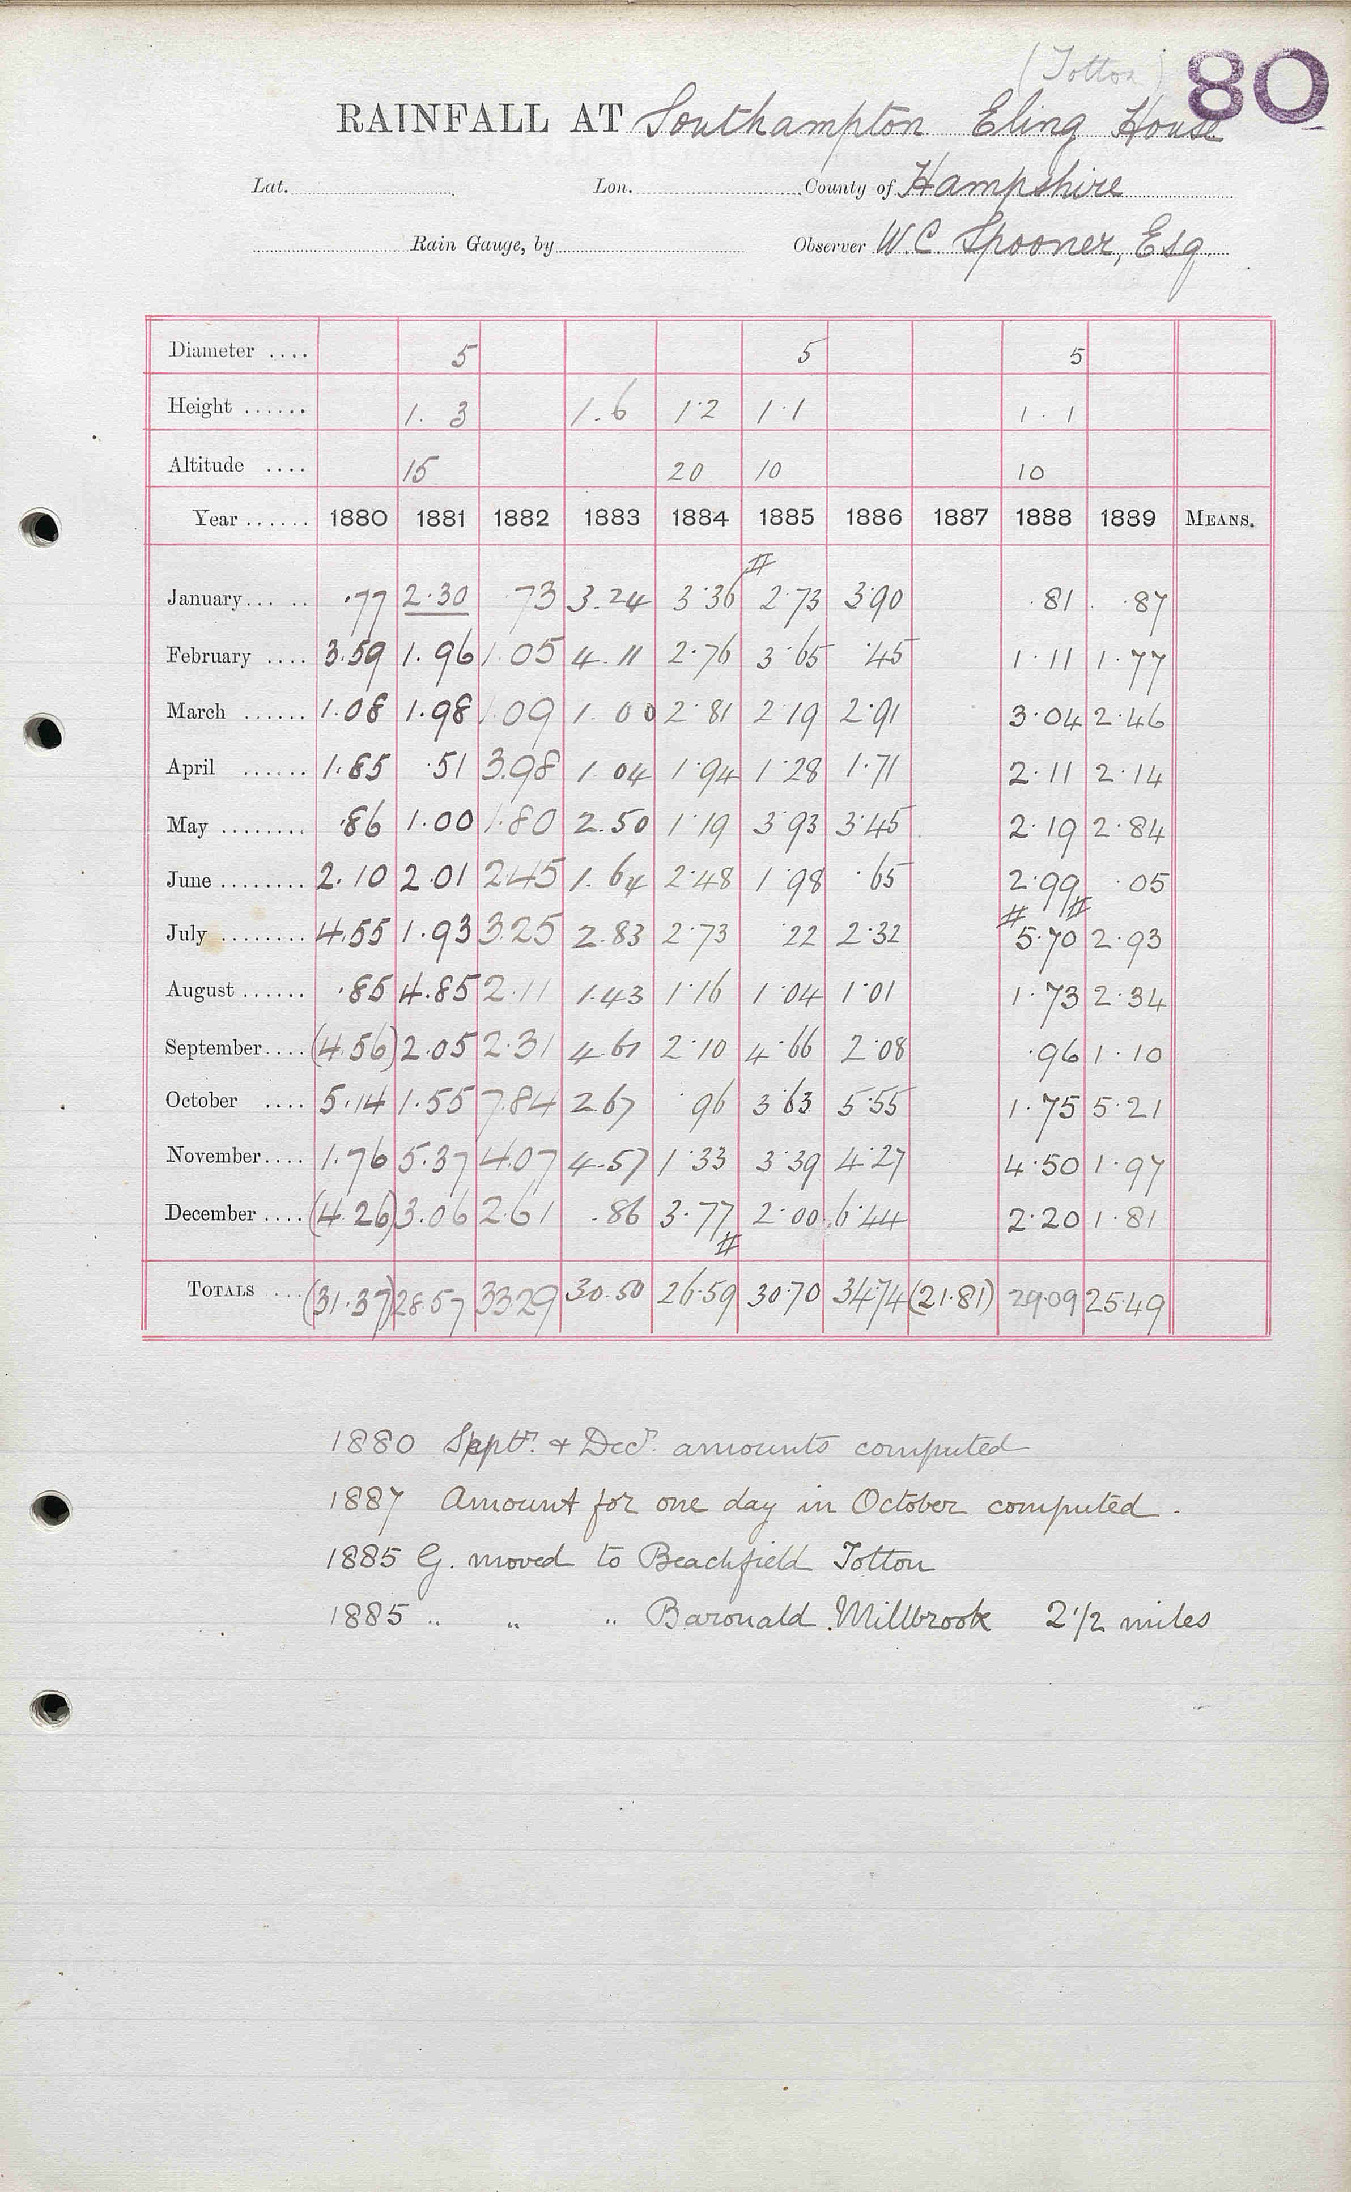 (Totton) 80
RAINFALL AT Southampton Eling House
Lat. Lon. County of Hampshire
Rain Gauge, by Observer W.C. Spooner, Esq
Diameter .... 5 5 5
Height ...... 1. 3 1.6 1·2 1·1 1·1
Altitude .... 15 20 10 10
Year ...... 1880 1881 1882 1883 1884 1885 1886 1887 1888 1889 MEANS.
#
January... .. ·77 2·30 ·73 3.24 3·36 2·73 3·90 ·81 ·87
February .... 3.59 1.96 1.05 4.11 2·76 3·65 ·45 1·11 1·77
March ...... 1.08 1.98 1.09 1.00 2·81 2·19 2·91 3·04 2·46
April ...... 1.85 ·51 3.98 1.04 1·94 1·28 1·71 2·11 2·14
May ........ ·86 1.00 1.80 2.50 1·19 3·93 3·45 2·19 2·84
June ........ 2.10 2.01 2.45 1.64 2·48 1·98 ·65 2·99 ·05
# #
July ........ 4.55 1.93 3.25 2.83 2·73 ·22 2·32 5·70 2·93
August ...... ·85 4.85 2.11 1.43 1·16 1·04 1·01 1·73 2·34
September.... (4.56) 2.05 2.31 4.61 2·10 4·66 2·08 ·96 1·10
October .... 5.14 1.55 7.84 2.67 ·96 3·63 5·55 1·75 5·21
November.... 1.76 5.37 4.07 4.57 1·33 3·39 4·27 4·50 1·97
December .... (4.26) 3.06 2.61 .86 3·77 2·00 6·44 2·20 1·81
#
TOTALS ... (31.37) 28.57 33.29 30.50 26·59 30·70 34·74 (21·81) 29·09 25·49
1880 Septr. & Decr. amounts computed
1887 Amount for one day in October computed.
1885 G. moved to Beachfield Totton
1885 " " " Baronald Millbrook 2 1/2 miles